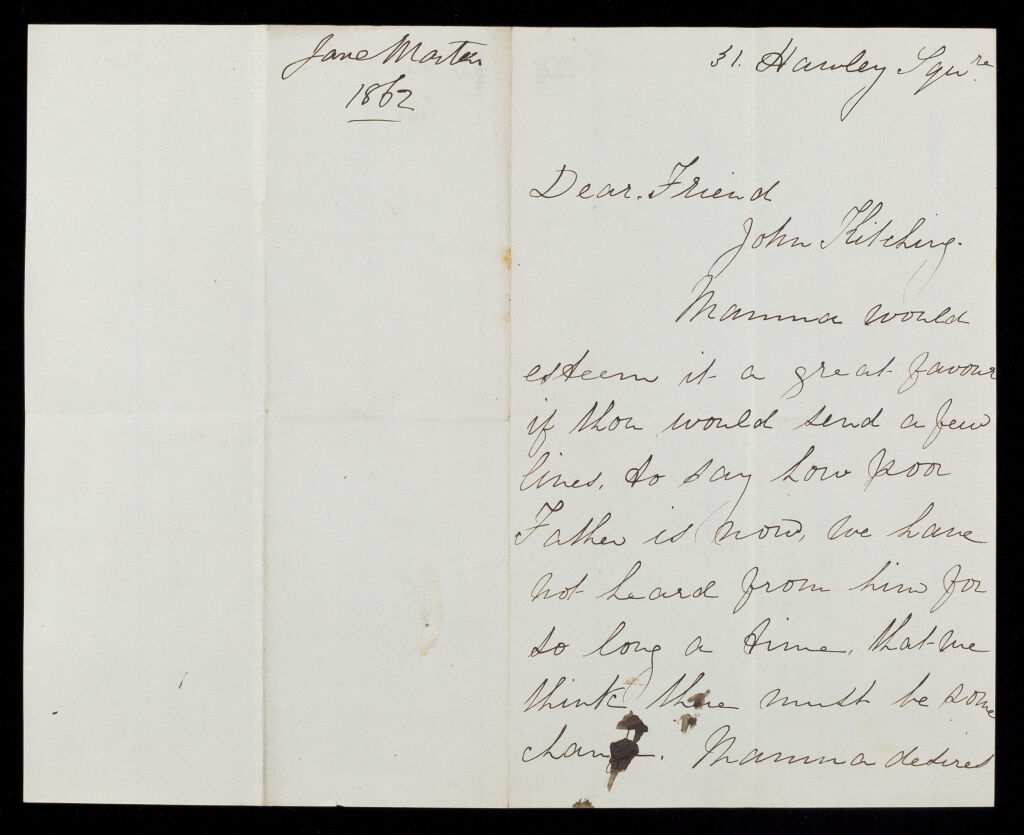 Jane Marten
1862
31. Hawley Squre
Dear. Friend
John Kitching.
Mamma would
esteem it a great favour
if thou would send a few
lines, to say how poor
Father is now, we have
not heard from him for
so long a time, that we
think there must be some
change. Mamma desires